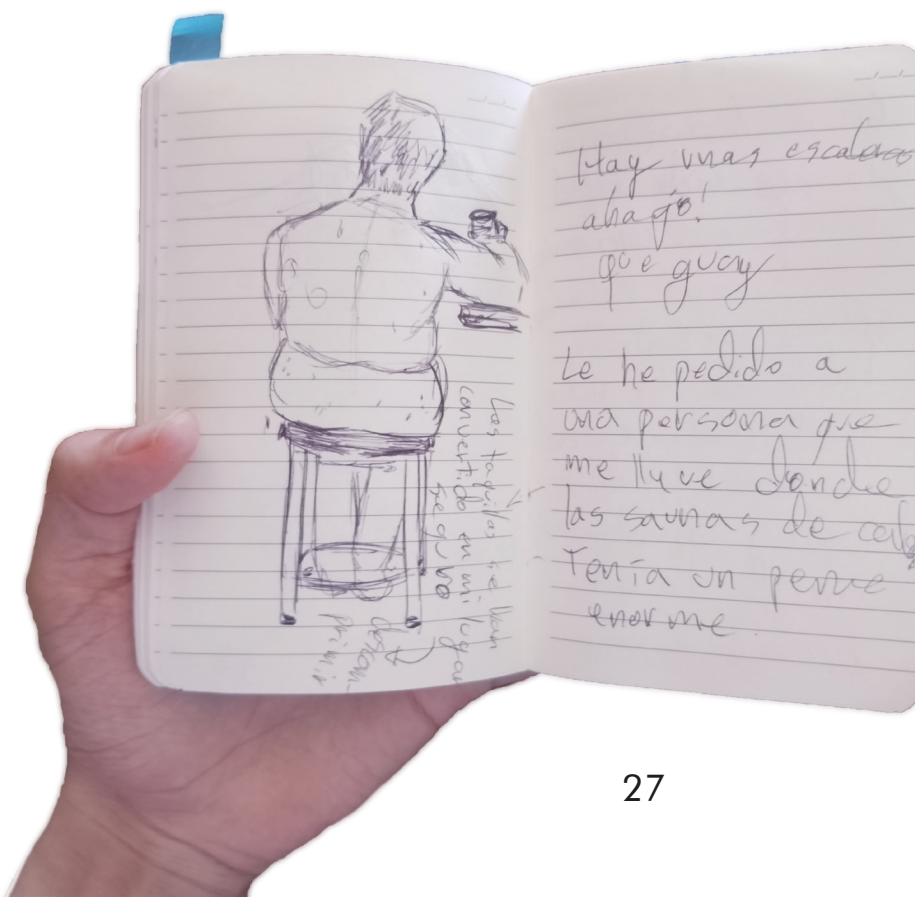 Las taquillas se han
convertido en mi lugar
seguro
descom-
primir
Hay unas escaleras
abajo!
que guay
Le he pedido a
una persona que
me lleve dónde
las saunas de
Tenía un pene
enorme.
27